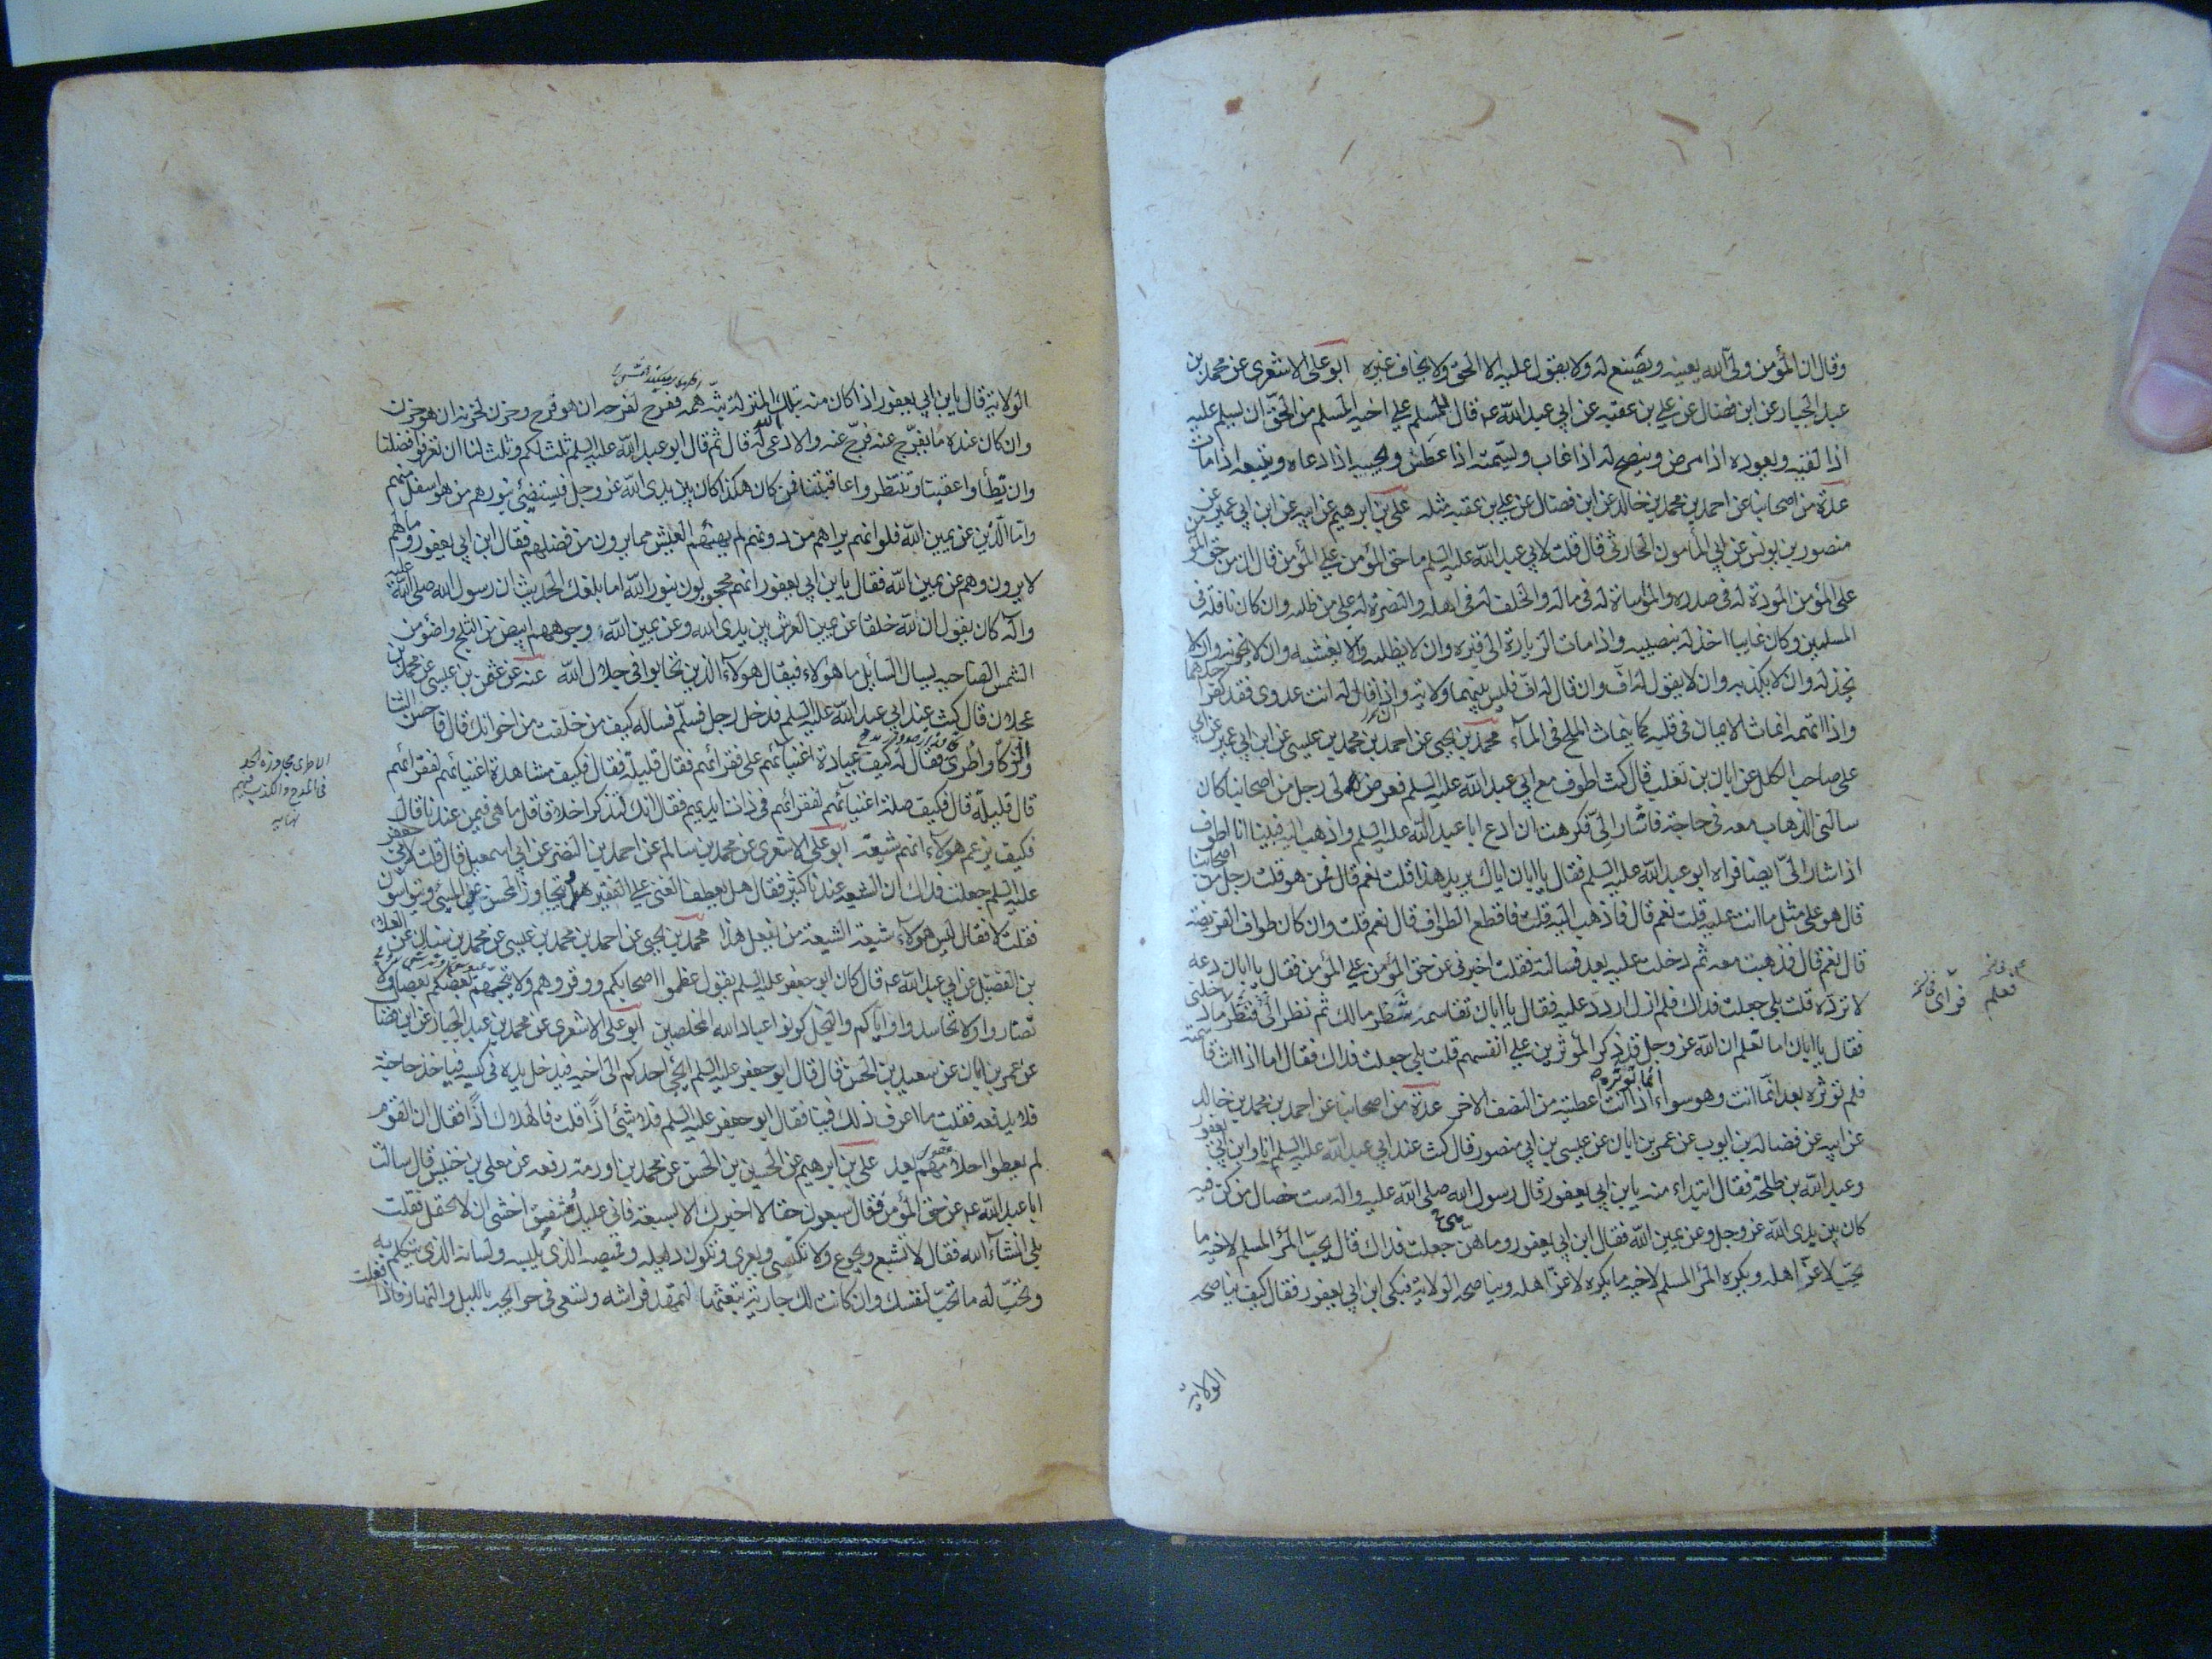 وقال ان المؤمن ولى الله يعينه ويصنع له ولا يقول عليه الا الحق ولا يخاف غيره ابو على الاشعرى عن محمد بن
عبد الجبار عن ابن فضال عن على بن عقبه عن ابى عبد الله ع قال للمسلم على اخيه المسلم من الحق ان يسلم عليه
اذا لقيه ويعوده اذا مرض وينصح له اذا غاب ويسمته اذا عطس ويجيبه اذا دعاه ويتبعه اذا مات
عدة من اصحابنا عن احمد بن محمد بن خالد عن ابن فضال عن على بن عقبه مثله على بن ابرهيم عن ابيه عن ابن ابى عمير عن
منصور بن يونس عن ابى المأمون الحارثى قال قلت لابى عبد الله عليه السلم ما حق المؤمن على المؤمن قال ان من حق المؤمن
على المؤمن المودة له فى صدره والمؤساة له فى ماله والخلف له فى اهله والنصرة له على من ظلمه وان كان نافلة فى
المسلمين وكان غايبا اخذ له بنصيبه واذا مات الزيارة الى قبره وان لا يظلمه وان لا يغشه وان لا يخونه وان لا
يخذله وان لا يكذبه وان لا يقول له اف وان قال له اف فليس بينهما ولاية واذا قال له انت عدوى فقد كفر احدهما
واذا اتهمه انماث الايمان فى قلبه كما ينماث الملح فى المآء محمد بن يحيى عن احمد بن محمد بن عيسى عن ابن ابى عمير عن ابى
على صاحب الكلل عن ابان بن تغلب قال كنت اطوف مع ابى عبد الله عليه السلم فعرض لى رجل من اصحابنا كان
سالنى الذهاب معه فى حاجة فاشار الىّ فكرهت ان ادع ابا عبد الله عليه السلم واذهب اليه فبينا انا اطوف
اذ اشار الىّ ايضا فراه ابو عبد الله عليه السلم فقال يا ابان اياك يريد هذا قلت نعم قال فمن هو قلت رجل من اصحابنا
قال هو على مثل ما انت عليه قلت نعم قال فاذهب اليه قلت فاقطع الطواف قال نعم قلت وان كان طواف الفريضة
قال نعم قال فذهبت معه ثم دخلت عليه بعد فسالته فقلت اخبرنى عن حق المؤمن على المؤمن فقال يا ابان دعه
لا ترده قلت بلى جعلت فداك فلم ازل اردد عليه فقال يا ابان تقاسمه شطر مالك ثم نظر الىّ فنظر ما دخلنى
فقال يا ابان اما تعلم ان الله عز وجل قد ذكر المؤثرين على انفسهم قلت بلى جعلت فداك فقال اما اذا انت قاسمته
فلم تؤثره بعد انما انت وهو سواء انما تؤثره اذا انت اعطيته من النصف الاخر عدة من اصحابنا عن احمد بن محمد بن خالد
عن ابيه عن فضالة بن ايوب عن عمر بن ابان عن عيسى بن ابى منصور قال كنت عند ابى عبد الله عليه السلم انا وابن ابى يعفور
وعبد الله بن طلحة فقال ابتداء منه يا بن ابى يعفور قال رسول الله صلى الله عليه واله ست خصال من كن فيه
كان بين يدى الله عز وجل وعن يمين الله فقال ابن ابى يعفور وما هن جعلت فداك قال يحب المرأ المسلم لاخيه ما
يحب لاعز اهله ويكره المرأ المسلم لاخيه ما يكره لاعز اهله ويناصحه الولاية فبكى ابن ابى يعفور فقال كيف يناصحه
الولاية
فعلم
الولاية قال يا بن ابى يعفور اذا كان منه تلك المنزلة بثه همه ففرح لفرحه ان هو فرح وحزن لحزنه ان هو حزن
وان كان عنده ما يفرج عنه فرج عنه والا دعى الله له قال ثم قال ابو عبد الله عليه السلم ثلث لكم وثلث لنا ان تعرفوا فضلنا
وان تطأوا عقبنا وتنتظروا عاقبتنا فمن كان هكذا كان بين يدى الله عز وجل فيستضئ بنورهم من هو اسفل منهم
واما الذين عن يمين الله فلو انهم يراهم من دونهم لم يهنئهم العيش مما يرون من فضلهم فقال ابن ابى يعفور وما لهم
لا يرون وهم عن يمين الله فقال يا بن ابى يعفور انهم محجوبون بنور الله اما بلغك الحديث ان رسول الله صلى الله عليه
وآله كان يقول ان لله خلقا عن يمين العرش بين يدى الله وعن يمين الله وجوههم ابيض من الثلج واضوء من
الشمس الضاحيه يسال السائل ما هؤلاء فيقال هؤلآء الذين تحابوا فى جلال الله عنه عن عثمن بن عيسى عن محمد بن
عجلان قال كنت عند ابى عبد الله عليه السلم فدخل رجل فسلم فساله كيف من خلفت من اخوانك قال فاحسن الثنا
وزكا واطرى فقال له كيف عيادة اغنيائهم على فقرائهم فقال قليلة فقال فكيف مشاهدة اغنيائهم لفقرائهم
قال قليلة قال فكيف صلة اغنيائهم لفقرائهم فى ذات ايديهم فقال انك لتذكر اخلاقا قل ما هى فيمن عندنا قال
فكيف يزعم هؤلآء انهم شيعة ابو على الاشعرى عن محمد بن سالم عن احمد بن النضر عن ابى اسمعيل قال قلت لابى جعفر
عليه السلم جعلت فداك ان الشيعة عندنا كثير فقال هل يعطف الغنى على الفقير وهل يتجاوز المحسن عن المسئ ويتواسون
فقلت لا فقال ليس هؤلآء شيعة الشيعة من يفعل هذا محمد بن يحيى عن احمد بن محمد بن عيسى عن محمد بن سنان عن العلاء
بن الفضيل عن ابى عبد الله ع قال كان ابو جعفر عليه السلم يقول عظموا اصحابكم ووقروهم ولا يتجهم بعضكم بعضا ولا
تضاروا ولا تحاسدوا واياكم والبخل كونوا عباد الله المخلصين ابو على الاشعرى عن محمد بن عبد الجبار عن ابن فضال
عن عمر بن ابان عن سعيد بن الحسن قال قال ابو جعفر عليه السلم ايجئ احدكم الى اخيه فيدخل يده فى كيسه فياخذ حاجته
فلا يدفعه فقلت ما اعرف ذلك فينا فقال ابو جعفر عليه السلم فلا شئ اذًا قلت فالهلاك اذًا فقال ان القوم
لم يعطوا احلامهم بعد على بن ابرهيم عن الحسين بن الحسن عن محمد بن اورمه رفعه عن معلى بن خنيس قال سالت
ابا عبد الله ع عن حق المؤمن فقال سبعون حقا لا اخبرك الا بسبعة فانى عليك مشفق اخشى ان لا تحتمل فقلت
بلى انشآء الله فقال لا تشبع ويجوع ولا تكتسى ويعرى وتكون دليله وقميصه الذى يلبسه ولسانه الذى يتكلم به
وتحب له ما تحب لنفسك وان كانت لك جارية بعثتها لتمهد فراشه وتسعى فى حوايجه بالليل والنهار فاذا فعلت
الاطرى مجاوزة الحد
فى المدح والكذب فيه
نهايه